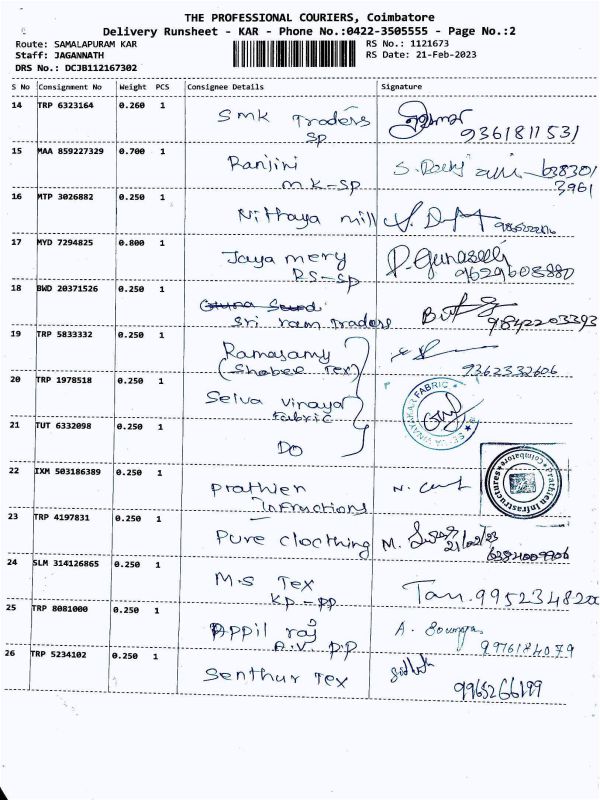 THE PROFESSIONAL COURIERS, Coimbatore
Delivery Runsheet - KAR - Phone No.:0422-3505555 - Page No.:2
Route: SAMALAPURAM KAR
RS No.: 1121673
Staff: JAGANNATH
RS Date: 21-Feb-2023
DRS No.: DCJB112167302
S No Consignment No Weight PCS Consignee Details Signature
14 TRP 6323164 0.260 1 SMK Traders
SP 9361811531
15 MAA 859227329 0.700 1 Ranjini
M.K-SP
16 MTP 3026882 0.250 1 Nithaya mill
17 MYD 7294825 0.800 1 Jaya mery P. Gunaseeli
RS-SP 9629608880
18 BWD 20371526 0.250 1
Sri ram Traders 9842203393
19 TRP 5833332 0.250 1 Ramasamy
(Shabee Tex) 9362332606
20 TRP 1978518 0.250 1 Selva vinaya
Fabric
SELVA VINAYAKAR FABRIC
21 TUT 6332098 0.250 1
DO
22 IXM 503186389 0.250 1 Prathien
Infructions
Prathien Infrastructures
Coimbatore
23 TRP 4197831 0.250 1 Pure clocthing M.
21/02/23
24 SLM 314126865 0.250 1 M.S Tex
KP-PP 9952348200
25 TRP 8081000 0.250 1 Appil raj A.
A.V. PP 9976184079
26 TRP 5234102 0.250 1 Senthur Tex
9965266199